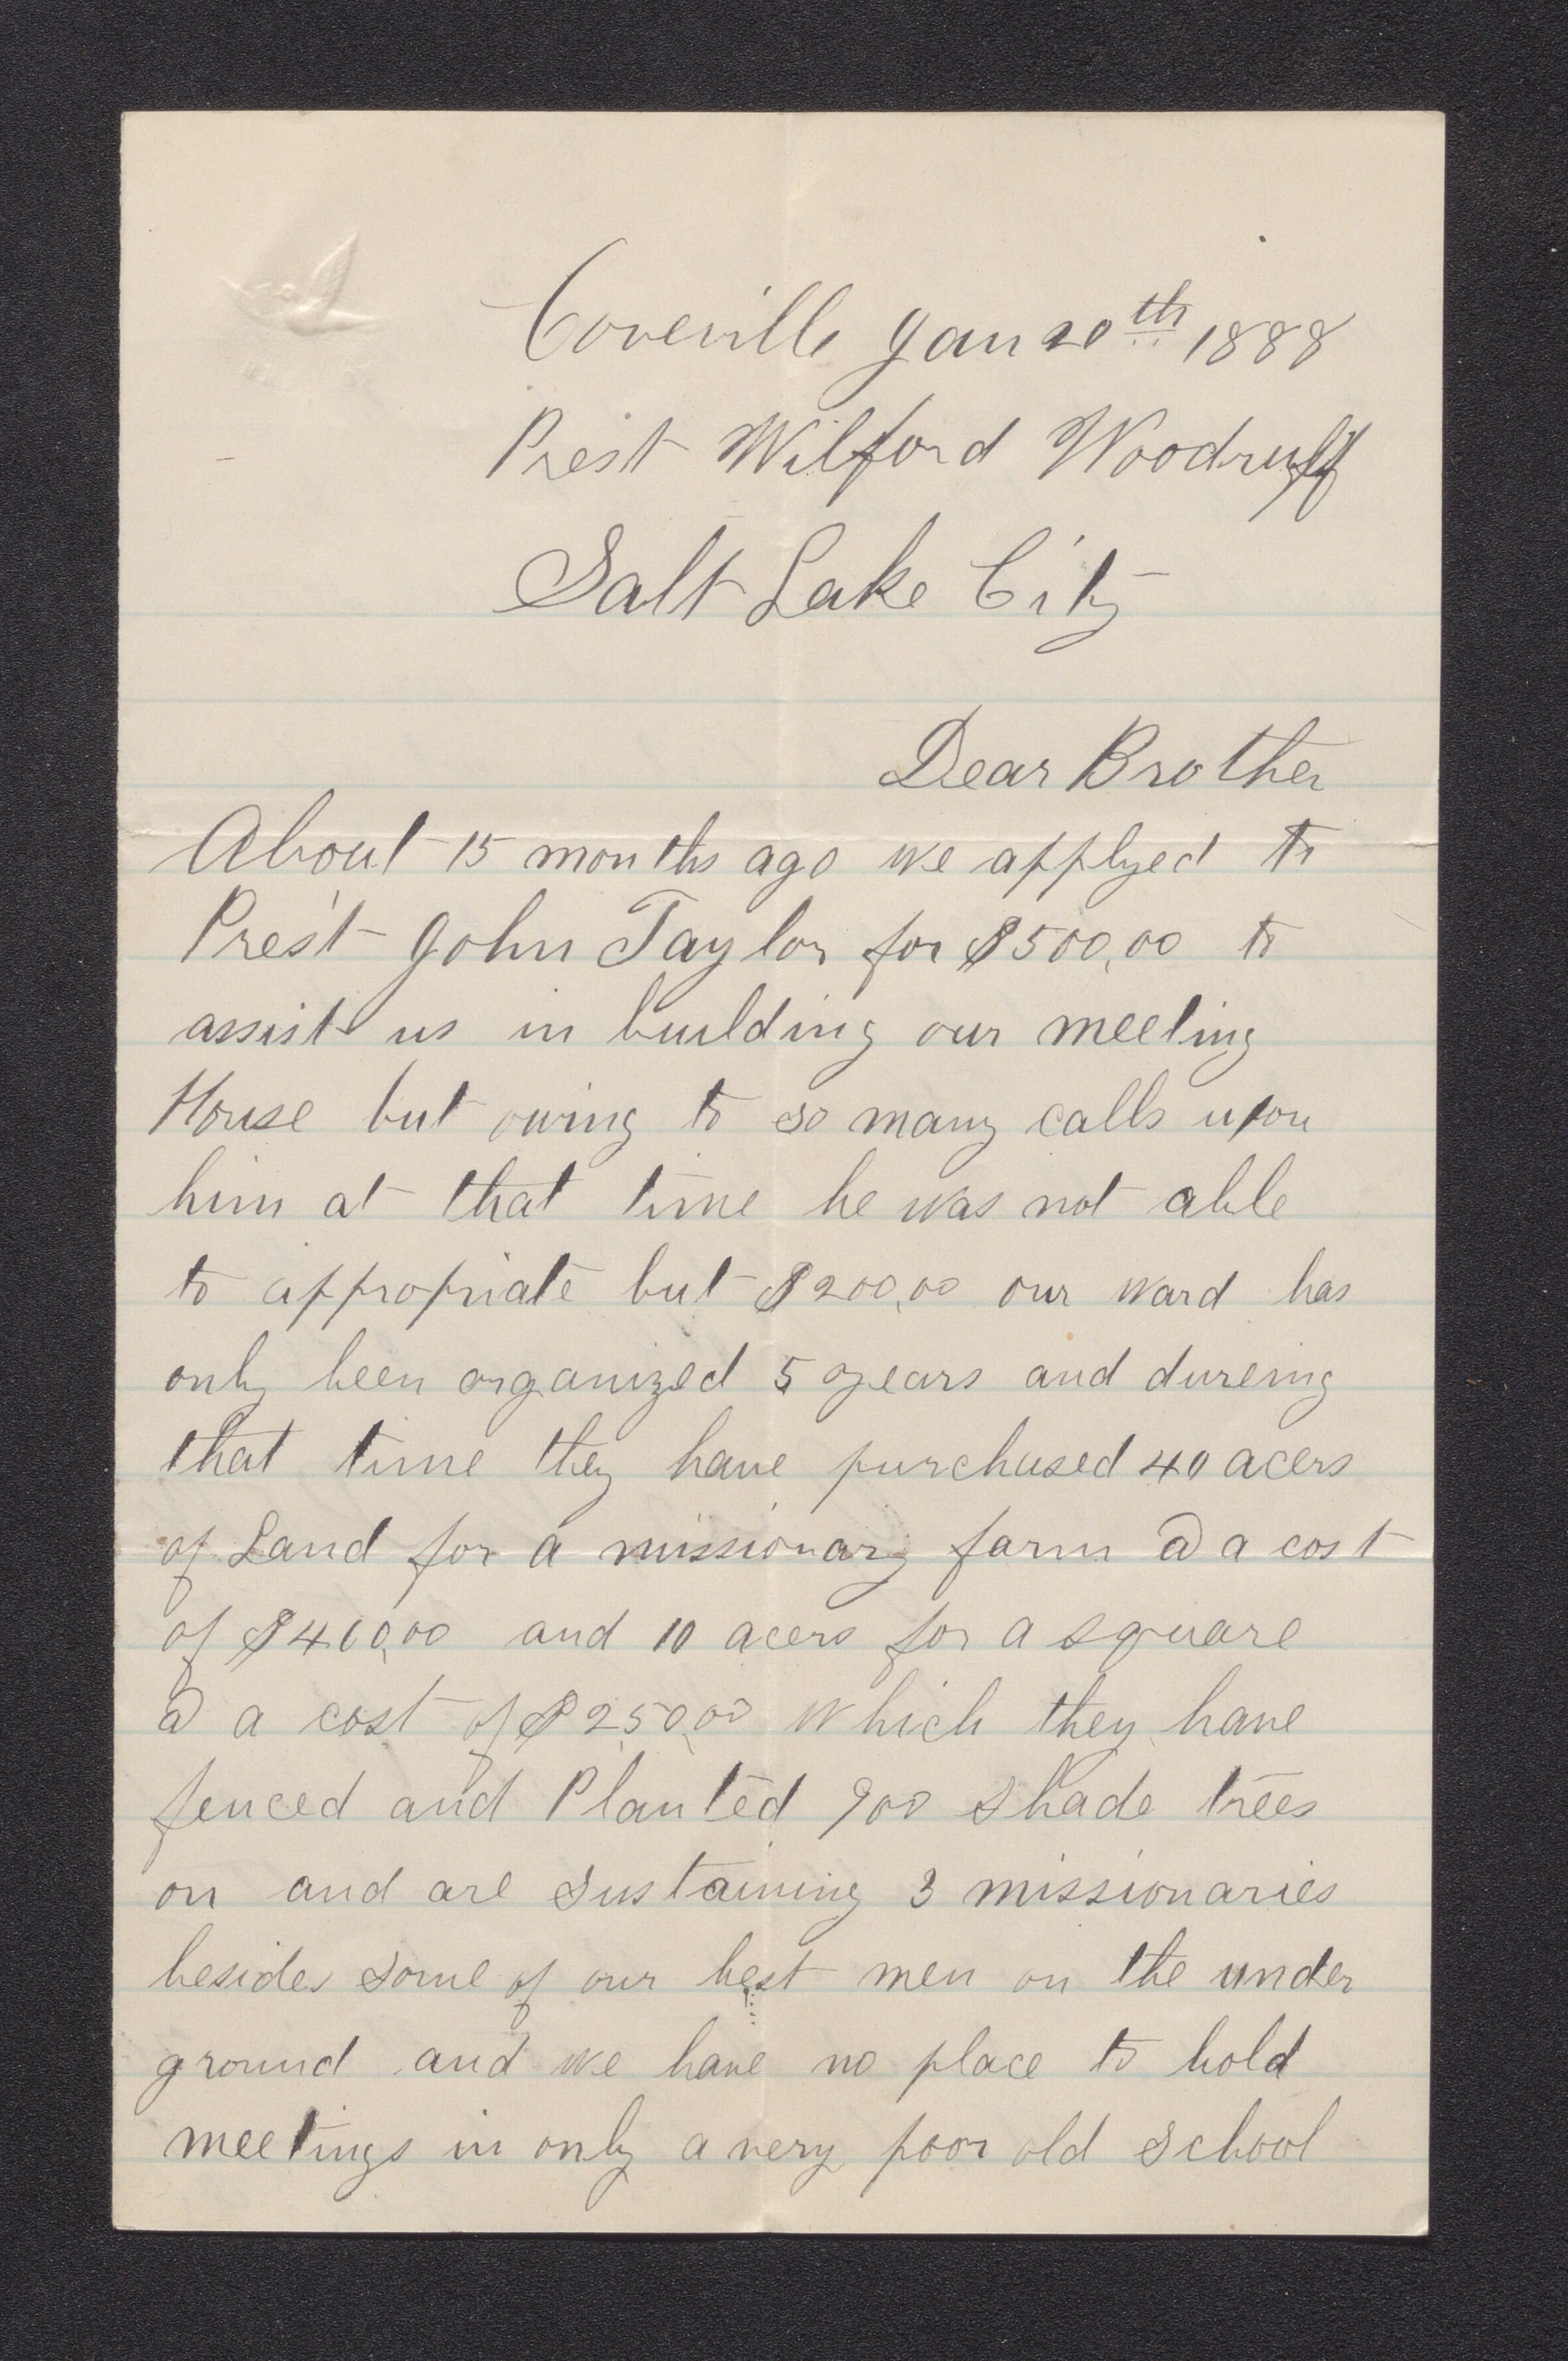 Coveville Jan 20th 1888
Prest Wilford Woodruff
Salt Lake City
Dear Brother
About 15 months ago we applyed to
Pres't John Taylor for $500,00 to
assist us in building our meeting
House but owing to so many calls upon
him at that time he was not able
to appropriate but $200,00 our ward has
only been organized 5 years and dureing
that time they have purchased 40 acers
of Land for a missionary farm @ a cost
of $400,00 and 10 acers for a square
@ a cost of $250,00 which they have
fenced and Planted 900 shade trees
on and are sustaining 3 missionaries
besides some of our best men on the under
ground and we have no place to hold
meetings in only a very poor old school